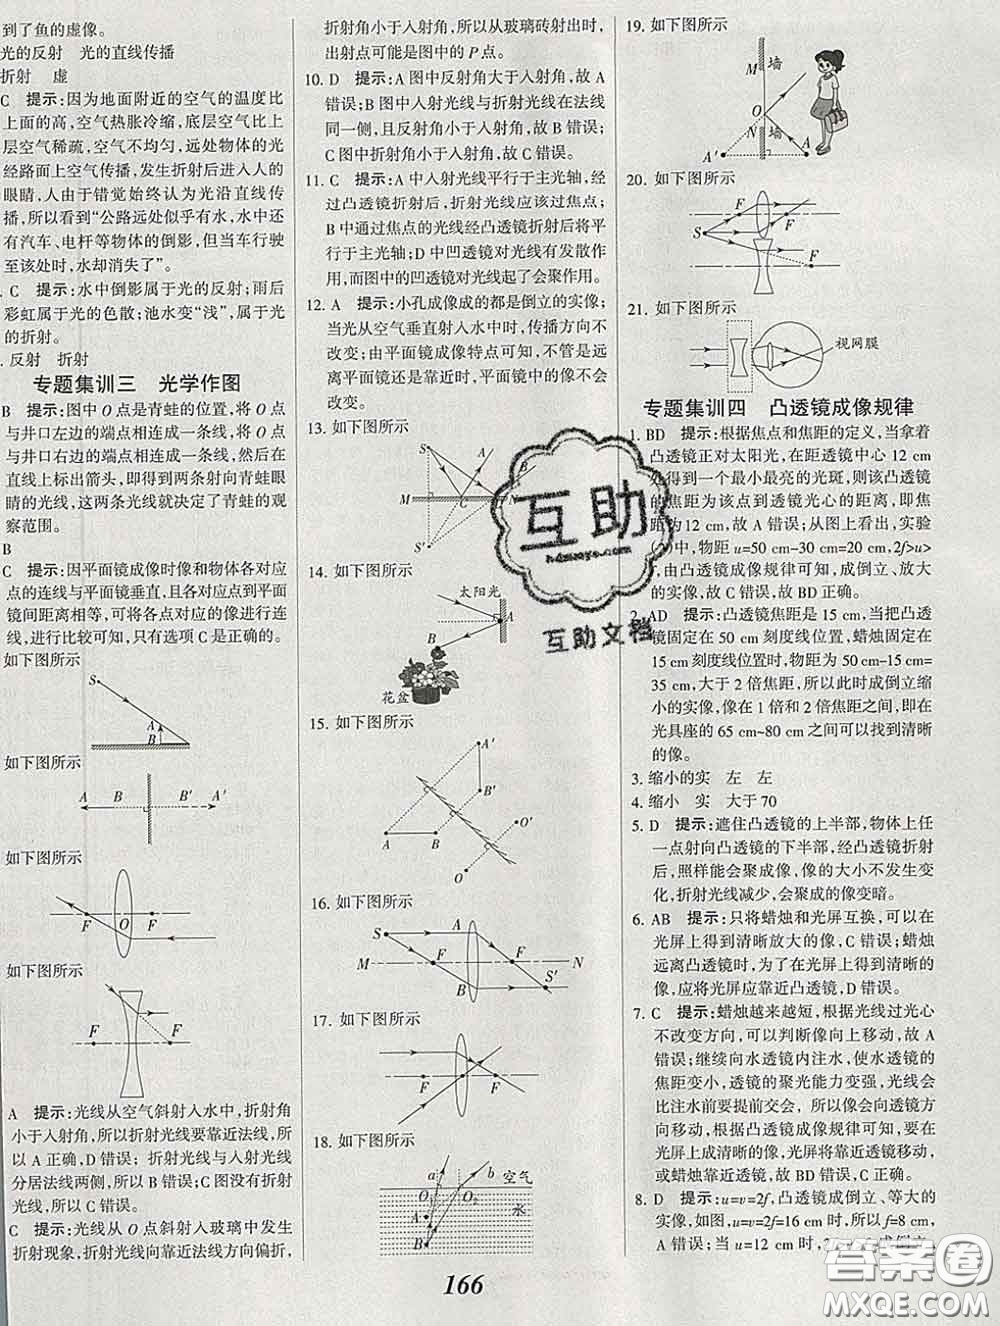 到了鱼的虚像。
光的反射　光的直线传播
折射　虚
C　提示:因为地面附近的空气的温度比
上面的高,空气热胀冷缩,底层空气受热
层空气稀疏,空气不均匀,远处物体的光
经路面上空气传播,发生折射后进入人的
眼睛,人由于错觉始终认为光沿直线传
播,所以看到“公路远处似乎有水,水中还
有汽车、电杆等物体的倒影,但当车行驶
至该处时,水却消失了”。
C　提示:水中倒影属于光的反射;雨后
彩虹属于光的色散;池水变“浅”,属于光
的折射。
反射　折射
专题集训三　光学作图
B　提示:图中O点是青蛙的位置,将O点
与井口左边的端点相连成一条线,将O点
与井口右边的端点相连成一条线,然后在
直线上标出箭头,即得到两条射向青蛙眼
睛的光线,这两条光线就决定了青蛙的观
察范围。
B
C　提示:因平面镜成像时像和物体各对应
点的连线与平面镜垂直,且各对应点到平面
镜间距离相等,可将各点对应的像位置作
出,进行比较可知,只有选项C是正确的。
如下图所示
S
A
B
如下图所示
A B B′ A′
如下图所示
F O F
如下图所示
F F
A　提示:光线从空气斜射入水中,折射角
小于入射角,所以折射光线要靠近法线,所
以A正确,D错误;折射光线与入射光线
分居法线两侧,所以B错误;C图没有折射
光线,所以C错误。
C　提示:光线从O点斜射入玻璃中发生
折射现象,折射光线向靠近法线方向偏折,
折射角小于入射角,所以从玻璃砖射出时,
出射点可能是图中的P点。
10. D　提示:A图中反射角大于入射角,故A
错误;B图中入射光线与折射光线在法线
同一侧,且反射角小于入射角,故B错误;
C图中折射角小于入射角,故C错误。
11. C　提示:A中入射光线平行于主光轴,经
过凸透镜折射后,折射光线应该过焦点;
B中通过焦点的光线经凸透镜折射后将平
行于主光轴;D中凹透镜对光线有发散作
用,而图中的凹透镜对光线起了会聚作用。
12. A　提示:小孔成像成的都是倒立的实像;
当光从空气垂直射入水中时,传播方向不
改变;由平面镜成像特点可知,不管是远
离平面镜还是靠近时,平面镜中的像不会
改变。
13. 如下图所示
S
M C N
S′
14. 如下图所示
太阳光
A
B
花盆
15. 如下图所示
A′
B′
O′
A B
O
16. 如下图所示
S A
M F F N
B S′
17. 如下图所示
F F
18. 如下图所示
a b 空气
O₁ O₂ 水
A
B
19. 如下图所示
M 墙
O
N 墙
A′ A
20. 如下图所示
F F
S
F
21. 如下图所示
视网膜
专题集训四　凸透镜成像规律
1. BD　提示:根据焦点和焦距的定义,当拿着
凸透镜正对太阳光,在距透镜中心12 cm
处得到一个最小最亮的光斑,则该凸透镜
的焦距为该点到透镜光心的距离,即焦
距为12 cm,故A错误;从图上看出,实验
中,物距u=50 cm-30 cm=20 cm,2f>u>
,由凸透镜成像规律可知,成倒立、放大
的实像,故C错误。故BD正确。
2. AD　提示:凸透镜焦距是15 cm,当把凸透
镜固定在50 cm刻度线位置,蜡烛固定在
15 cm刻度线位置时,物距为50 cm-15 cm=
35 cm,大于2倍焦距,所以此时成倒立缩
小的实像,像在1倍和2倍焦距之间,即在
光具座的65 cm~80 cm之间可以找到清晰
的像。
3. 缩小的实　左　左
4. 缩小　实　大于70
5. D　提示:遮住凸透镜的上半部,物体上任
一点射向凸透镜的下半部,经凸透镜折射
后,照样能会聚成像,像的大小不发生变
化,折射光线减少,会聚成的像变暗。
6. AB　提示:只将蜡烛和光屏互换,可以在
光屏上得到清晰放大的像,C错误;蜡烛
远离凸透镜时,为了在光屏上得到清晰的
像,应将光屏应靠近凸透镜,D错误。
7. C　提示:蜡烛越来越短,根据光线过光心
不改变方向,可以判断像向上移动,故A
错误;继续向水透镜内注水,使水透镜的
焦距变小,透镜的聚光能力变强,光线将
比注水前要提前交会,所以成像会向透镜方
向移动,根据凸透镜成像规律可知,要在
光屏上成清晰的像,光屏将靠近透镜移动,
或蜡烛靠近透镜,故BD错误,C正确。
8. D　提示:u=v=2f,凸透镜成倒立、等大的
实像,如图,u=v=2f=16 cm时,所以f=8 cm,
故A错误;当u=12 cm时,
成倒立、
166
互助
互助文档
答案圈
MXQE.COM